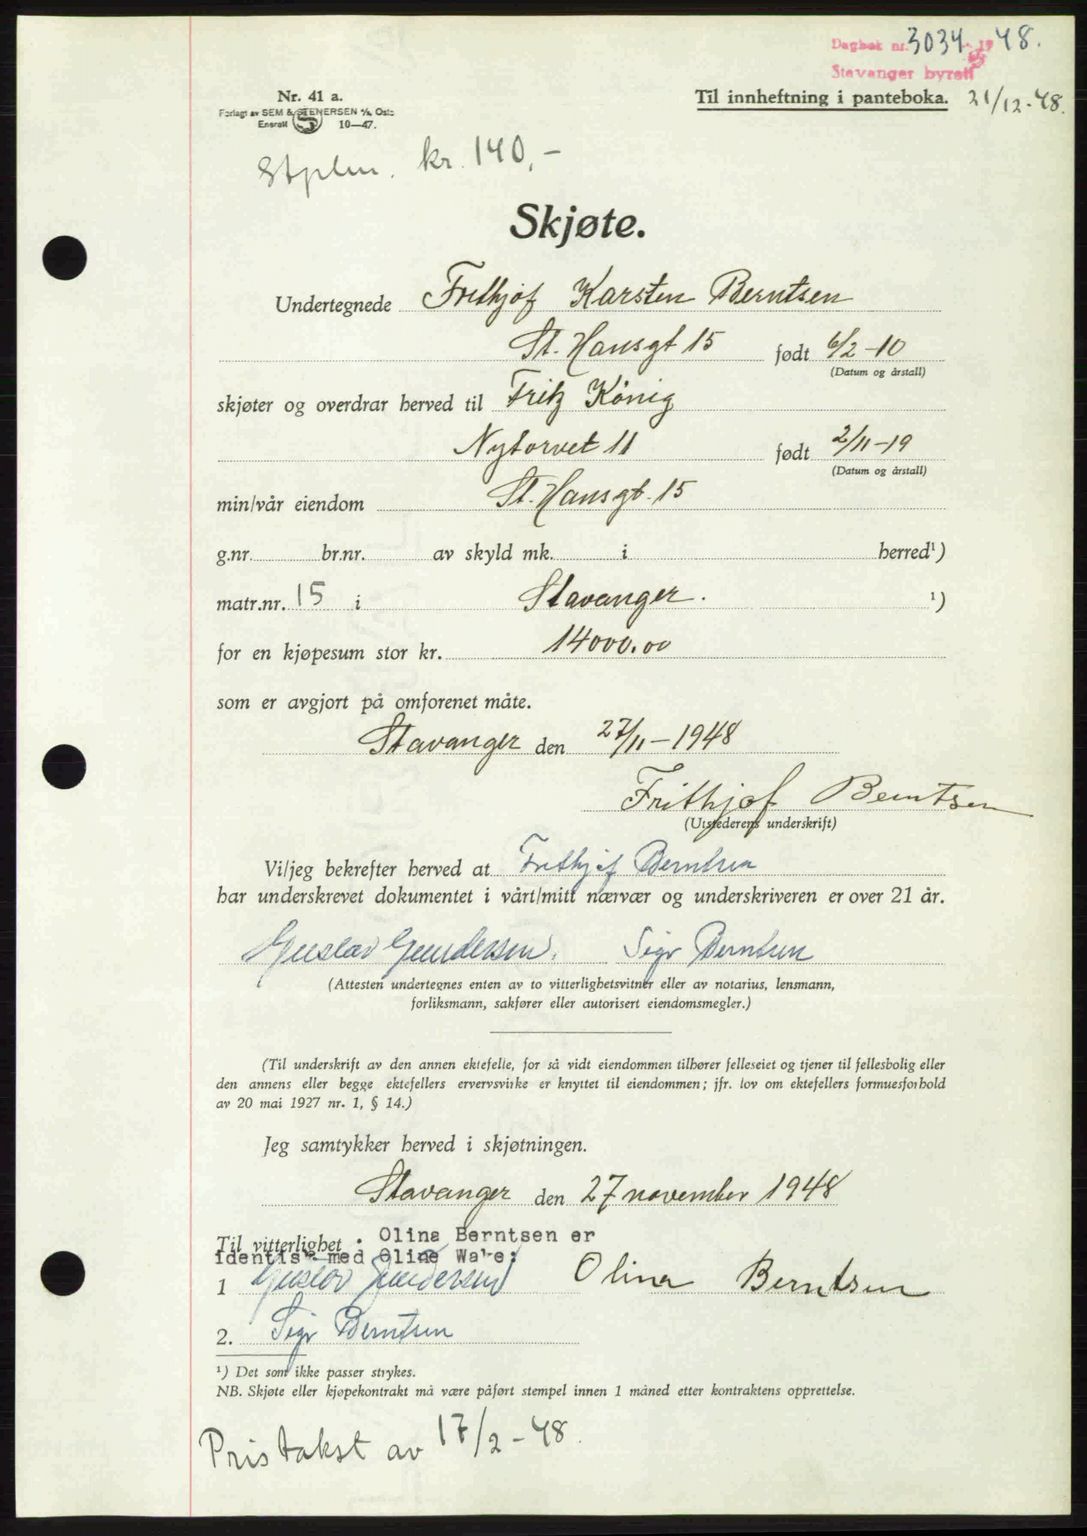 Dagbok nr. 3034 - 19 48.
Stavanger byrett
Nr. 41 a.
Forlagt av SEM & STENERSEN A/S, Oslo
Enerett 10—47.
Til innheftning i panteboka. 21/12-48.
kr. 140,-
Skjøte.
Undertegnede Frithjof Karsten Berntsen
St. Hansgt 15 født 6/2-10
(Datum og årstall)
skjøter og overdrar herved til Fritz König
Nytorvet 11 født 2/11-19
(Datum og årstall)
min/vår eiendom St. Hansgt. 15
g.nr. br.nr. av skyld mk. i herred¹)
matr.nr. 15 i Stavanger. ¹)
for en kjøpesum stor kr. 14000.00
som er avgjort på omforenet måte.
Stavanger den 27/11-1948
Frithjof Berntsen
(Utstederens underskrift)
Vi/jeg bekrefter herved at Frithjof Berntsen
har underskrevet dokumentet i vårt/mitt nærvær og underskriveren er over 21 år.
Gustav Gundersen. Sigv Berntsen
(Attesten undertegnes enten av to vitterlighetsvitner eller av notarius, lensmann,
forliksmann, sakfører eller autorisert eiendomsmegler.)
(Til underskrift av den annen ektefelle, for så vidt eiendommen tilhører felleseiet og tjener til fellesbolig eller
den annens eller begge ektefellers ervervsvirke er knyttet til eiendommen; jfr. lov om ektefellers formuesforhold
av 20 mai 1927 nr. 1, § 14.)
Jeg samtykker herved i skjøtningen.
Stavanger den 27 november 1948
Til vitterlighet: Olina Berntsen er
identisk med Oline
1 Gustav Gundersen Olina Berntsen
2. Sigv Berntsen
¹) Det som ikke passer strykes.
NB. Skjøte eller kjøpekontrakt må være påført stempel innen 1 måned etter kontraktens opprettelse.
Pristakst av 17/2-48.